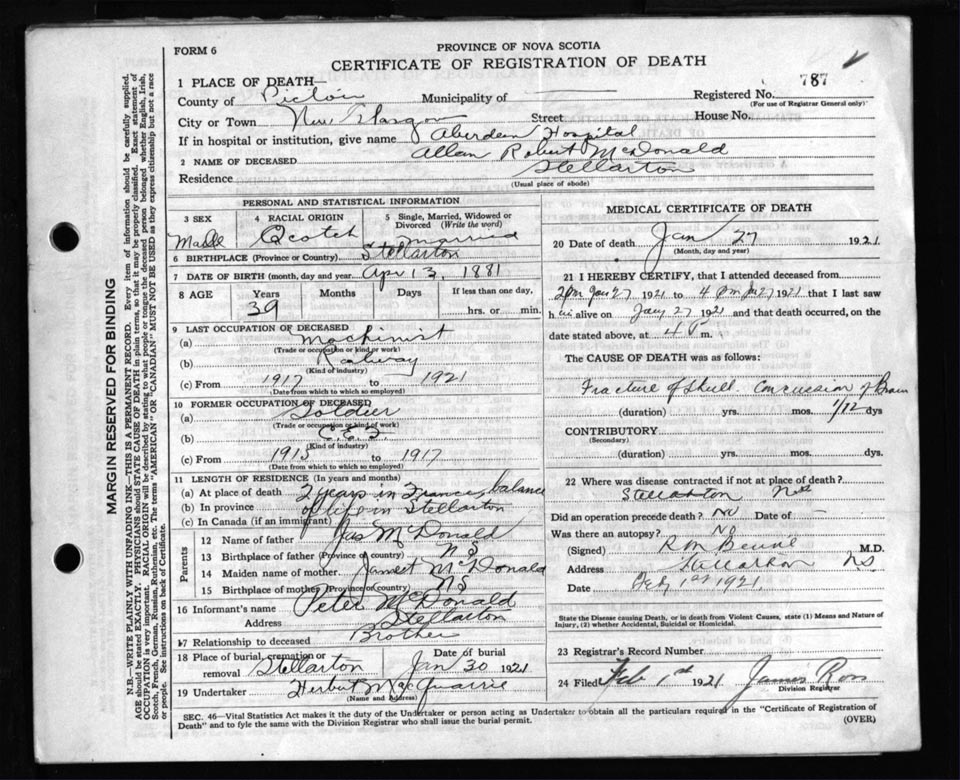 FORM 6
PROVINCE OF NOVA SCOTIA
CERTIFICATE OF REGISTRATION OF DEATH
787
1 PLACE OF DEATH—
County of Pictou Municipality of — Registered No.
(For use of Registrar General only)
City or Town New Glasgow Street House No.
If in hospital or institution, give name Aberdeen Hospital
2 NAME OF DECEASED Allan Robert McDonald
Residence Stellarton
(Usual place of abode)
PERSONAL AND STATISTICAL INFORMATION
3 SEX Male
4 RACIAL ORIGIN Scotch
5 Single, Married, Widowed or Divorced (Write the word) married
6 BIRTHPLACE (Province or Country) Stellarton
7 DATE OF BIRTH (month, day and year) Apr 13, 1881
8 AGE Years Months Days If less than one day,
39 hrs. or min.
9 LAST OCCUPATION OF DECEASED
(a) machinist
(Trade or occupation or kind of work)
(b) Railway
(Kind of industry)
(c) From 1917 to 1921
(Date from which to which so employed)
10 FORMER OCCUPATION OF DECEASED
(a) Soldier
(Trade or occupation or kind of work)
(b) C.E.F.
(Kind of industry)
(c) From 1915 to 1917
(Date from which to which so employed)
11 LENGTH OF RESIDENCE (In years and months)
(a) At place of death 2 years in France, balance
(b) In province of life in Stellarton
(c) In Canada (if an immigrant)
Parents
12 Name of father Jas McDonald
13 Birthplace of father (Province or country) N S
14 Maiden name of mother Janet McDonald
15 Birthplace of mother (Province or country) NS
16 Informant's name Peter McDonald
Address Stellarton
17 Relationship to deceased Brother
18 Place of burial, cremation or removal Stellarton Date of burial Jan 30 1921
19 Undertaker Herbert MacQuarrie
(Name and Address)
MEDICAL CERTIFICATE OF DEATH
20 Date of death Jan 27 1921
(Month, day and year)
21 I HEREBY CERTIFY, that I attended deceased from
2 pm Jan 27 1921 to 4 pm Jan 27 1921 that I last saw
him alive on Jany 27 1921 and that death occurred, on the
date stated above, at 4 P m.
The CAUSE OF DEATH was as follows:
Fracture of Skull. Concussion of Brain
(duration) yrs. mos. 1/12 dys
CONTRIBUTORY
(Secondary)
(duration) yrs. mos. dys
22 Where was disease contracted if not at place of death?
Stellarton
Did an operation precede death? No Date of —
Was there an autopsy? No
(Signed) M.D.
Address Stellarton NS
Date Feby 1st 1921
State the Disease causing Death, or in death from Violent Causes, state (1) Means and Nature of Injury, (2) whether Accidental, Suicidal or Homicidal.
23 Registrar's Record Number
24 Filed Feb 1st 1921 James Ross
Division Registrar
SEC. 46—Vital Statistics Act makes it the duty of the Undertaker or person acting as Undertaker to obtain all the particulars required in the "Certificate of Registration of
Death" and to fyle the same with the Division Registrar who shall issue the burial permit.
(OVER)
MARGIN RESERVED FOR BINDING
N.B.—WRITE PLAINLY WITH UNFADING INK—THIS IS A PERMANENT RECORD. Every item of information should be carefully supplied.
AGE should be stated EXACTLY. PHYSICIANS should STATE CAUSE OF DEATH in plain terms, so that it may be properly classified. Exact statement of
OCCUPATION is very important. RACIAL ORIGIN will be described by stating to what people or tongue the deceased person belonged whether English, Irish,
Scotch, French, German, Russian, Ruthenian, etc. The terms "AMERICAN" OR "CANADIAN" MUST NOT BE USED as they express citizenship but not a race
or people. See instructions on back of Certificate.